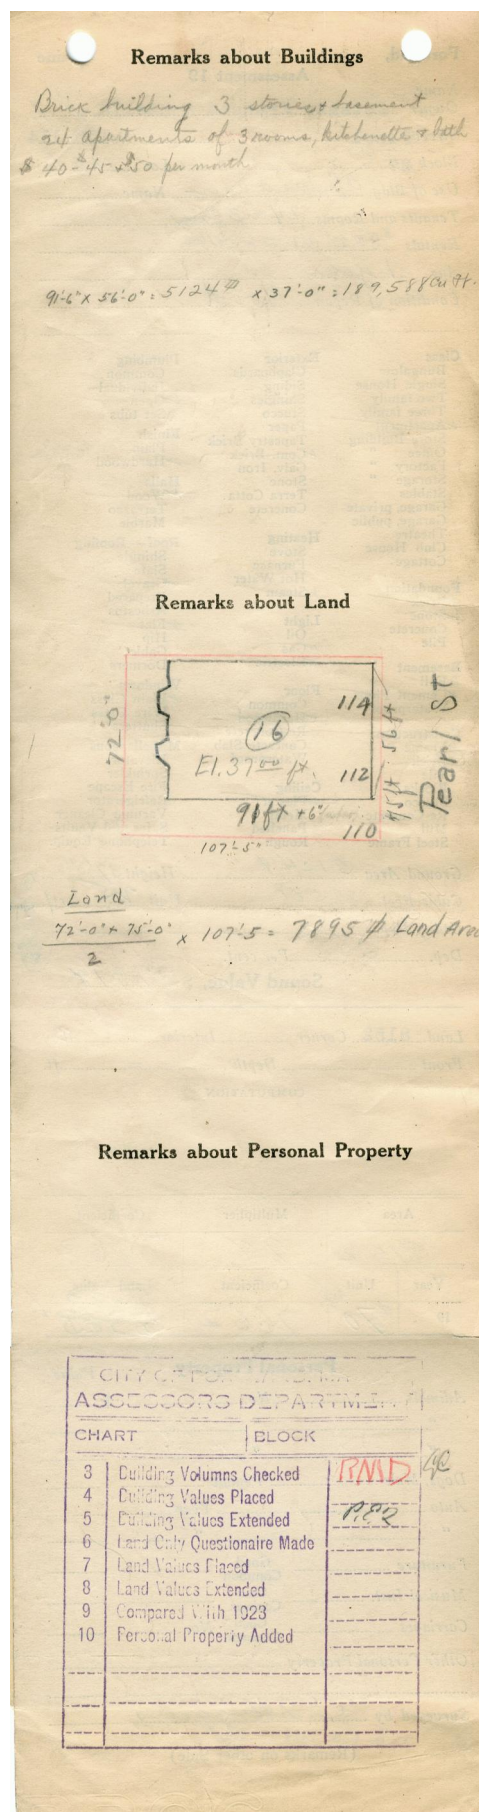 Remarks about Buildings
Brick building 3 stories & basement
24 apartments of 3 rooms, kitchenette & bath
$40-$45 & $50 per month
91'-6" x 56'-0" = 5124 ⌀ x 37'-0" = 189,588 Cu Ft.
Remarks about Land
72'-0"
114
16
El. 37 00 ft.
112
91 ft + 6"
110
107'-5"
56 ft
75 ft
Pearl St
Land
72'-0" + 75'-0" x 107'-5 = 7895 ⌀ Land Area
2
Remarks about Personal Property
CITY OF PORTLAND, ME.
ASSESSORS DEPARTMENT
CHART BLOCK
3 Building Volumns Checked RMD
4 Building Values Placed
5 Building Values Extended
6 Land Only Questionaire Made
7 Land Values Placed
8 Land Values Extended
9 Compared With 1923
10 Personal Property Added